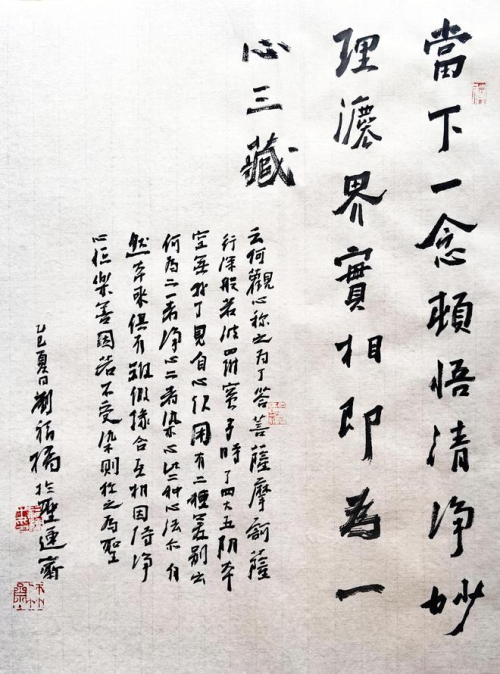 當下一念頓悟清净妙
理灋界實相即為一
心三藏
云何觀心称之为了答菩薩摩訶薩
行深般若波羅蜜多時了四大五阴本
空無我了見自心起用有二種差别云
何為二一者净心二者染心此二種心法尔自
然本來俱有雖假缘合互相因待净
心恒樂善因若不受染則称之為聖
乙巳夏日劉福橋於聖蓮齋